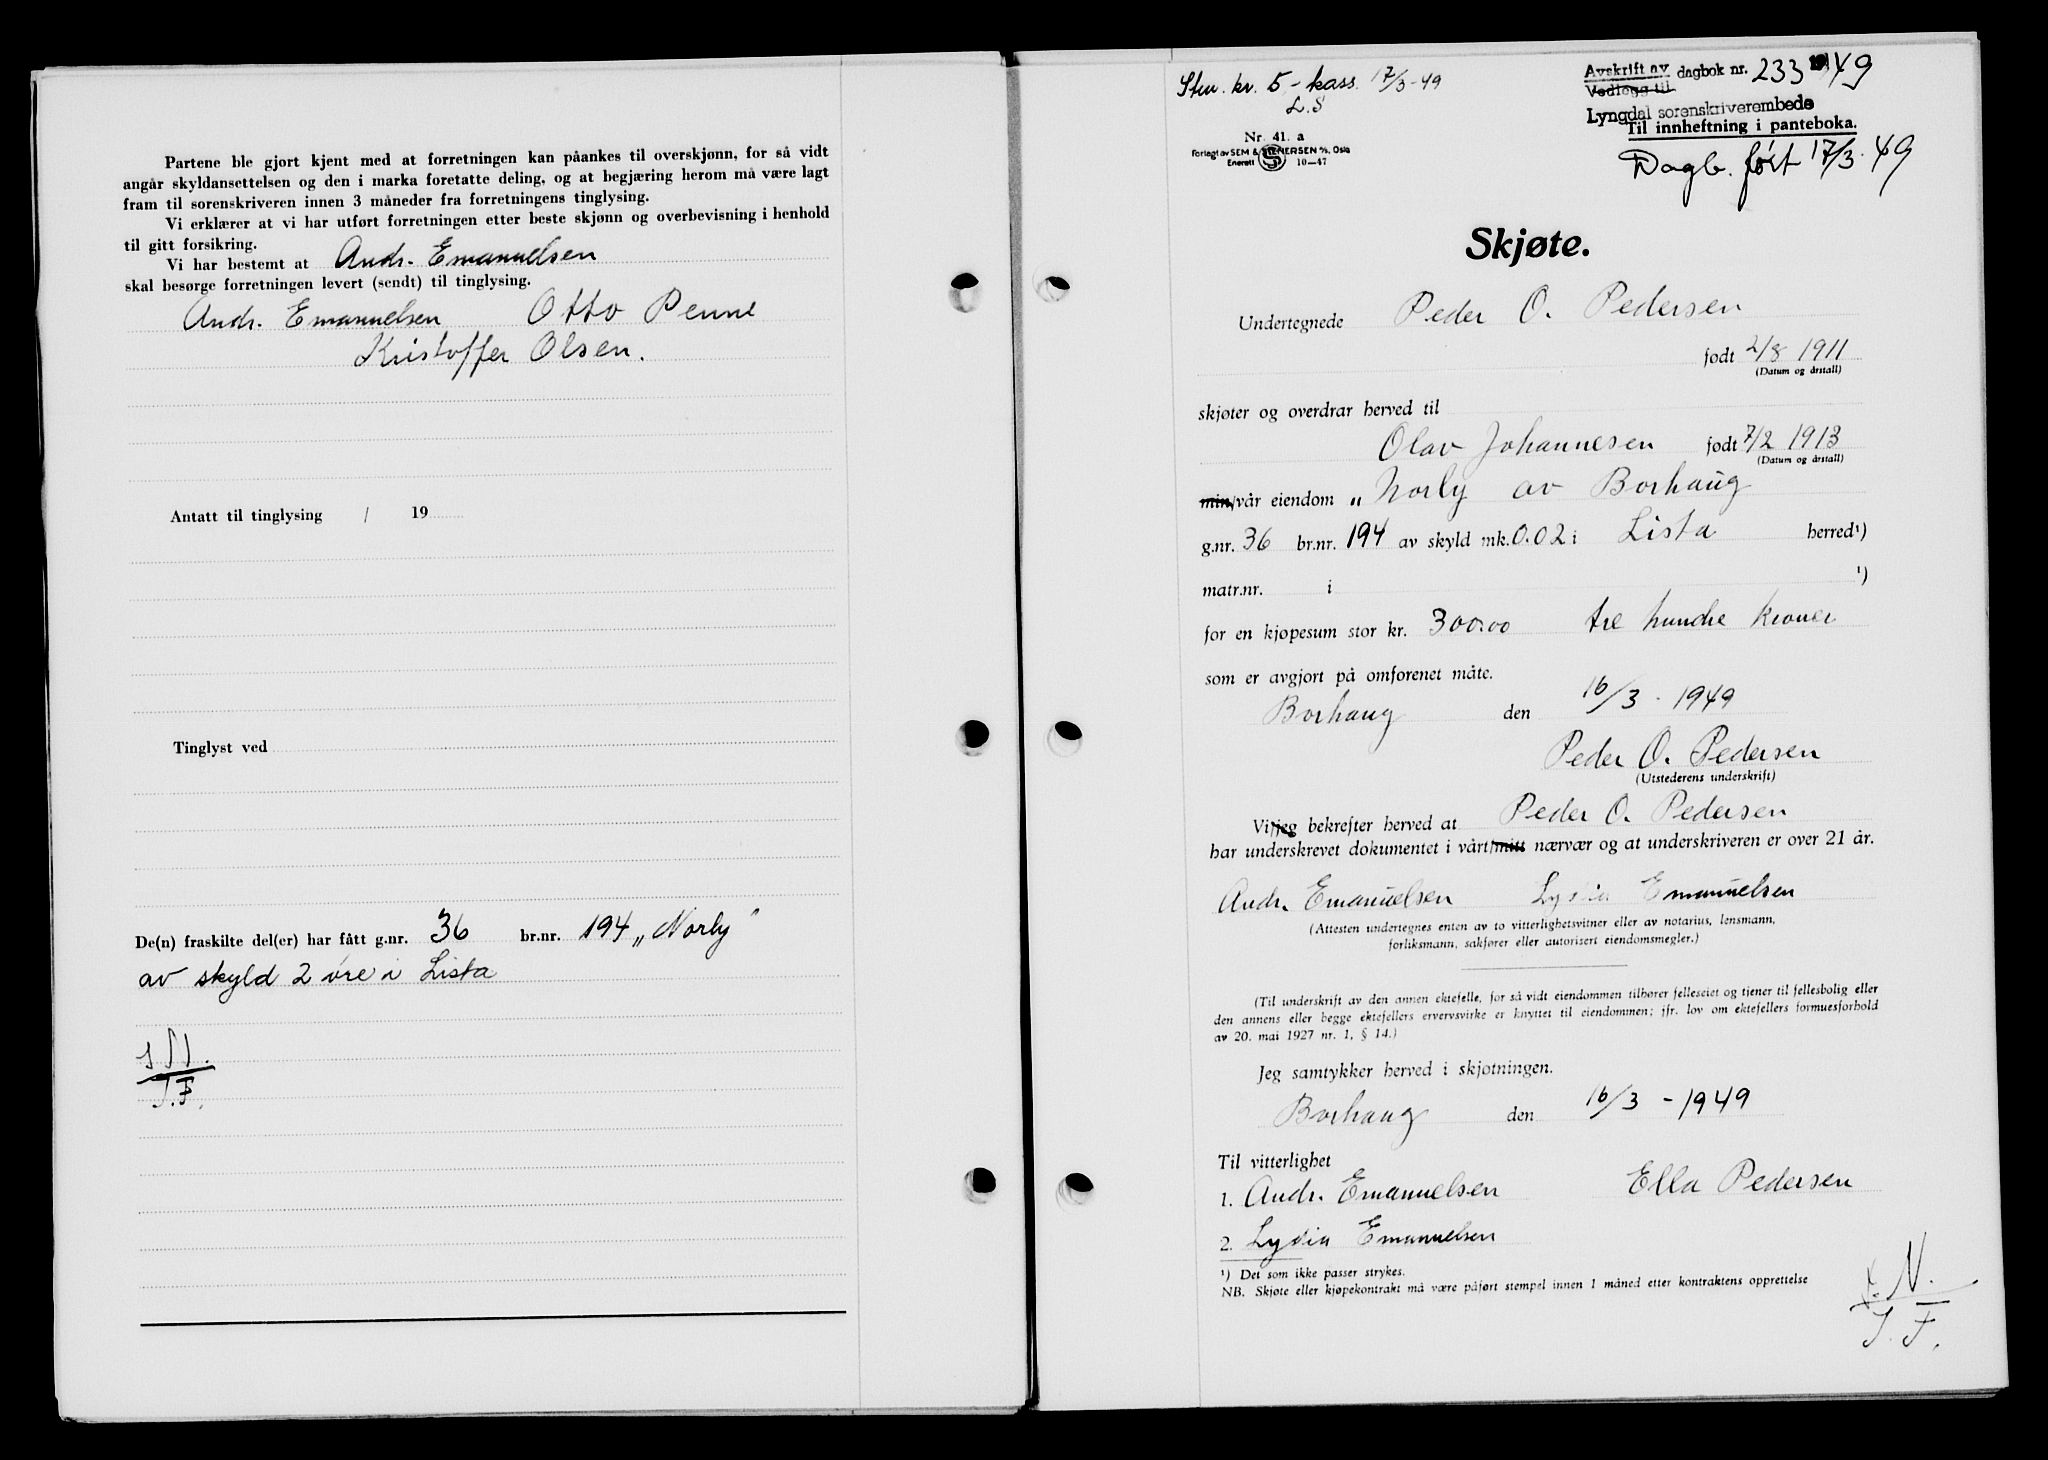 Partene ble gjort kjent med at forretningen kan påankes til overskjønn, for så vidt
angår skyldansettelsen og den i marka foretatte deling, og at begjæring herom må være lagt
fram til sorenskriveren innen 3 måneder fra forretningens tinglysing.
Vi erklærer at vi har utført forretningen etter beste skjønn og overbevisning i henhold
til gitt forsikring.
Vi har bestemt at Andr. Emanuelsen
skal besørge forretningen levert (sendt) til tinglysing.
Andr. Emanuelsen Otto Penne
Kristoffer Olsen.
Antatt til tinglysing / 19
Tinglyst ved
De(n) fraskilte del(er) har fått g.nr. 36 br.nr. 194 „Norby"
av skyld 2 øre i Lista
J.F.
Stm. kr. 5 - kass. 17/3-49
L.S
Nr. 41. a
Forlagt av SEM & STENERSEN A/S, Oslo
Enerett S 10-47
Avskrift av dagbok nr. 233 1949
Vedlegg til
Lyngdal sorenskriverembede
Til innheftning i panteboka.
Dagb. ført 17/3.49
Skjøte.
Undertegnede Peder O. Pedersen
født 2/8 1911
(Datum og årstall)
skjøter og overdrar herved til
Olav Johannesen født 7/2 1913
(Datum og årstall)
min/vår eiendom „Norby av Borhaug
g.nr. 36 br.nr. 194 av skyld mk. 0.02 i Lista herred¹)
matr.nr. i ¹)
for en kjøpesum stor kr. 300.00 tre hundre kroner
som er avgjort på omforenet måte.
Borhaug den 16/3 - 1949
Peder O. Pedersen
(Utstederens underskrift)
Vi/jeg bekrefter herved at Peder O. Pedersen
har underskrevet dokumentet i vårt/mitt nærvær og at underskriveren er over 21 år.
Andr. Emanuelsen Lydia Emanuelsen
(Attesten undertegnes enten av to vitterlighetsvitner eller av notarius, lensmann,
forliksmann, sakfører eller autorisert eiendomsmegler.)
(Til underskrift av den annen ektefelle, for så vidt eiendommen tilhører felleseiet og tjener til fellesbolig eller
den annens eller begge ektefellers ervervsvirke er knyttet til eiendommen; jfr. lov om ektefellers formuesforhold
av 20. mai 1927 nr. 1, § 14.)
Jeg samtykker herved i skjøtningen.
Borhaug den 16/3 - 1949
Til vitterlighet
1. Andr. Emanuelsen Ella Pedersen
2. Lydia Emanuelsen
¹) Det som ikke passer strykes.
NB. Skjøte eller kjøpekontrakt må være påført stempel innen 1 måned etter kontraktens opprettelse
J. F.